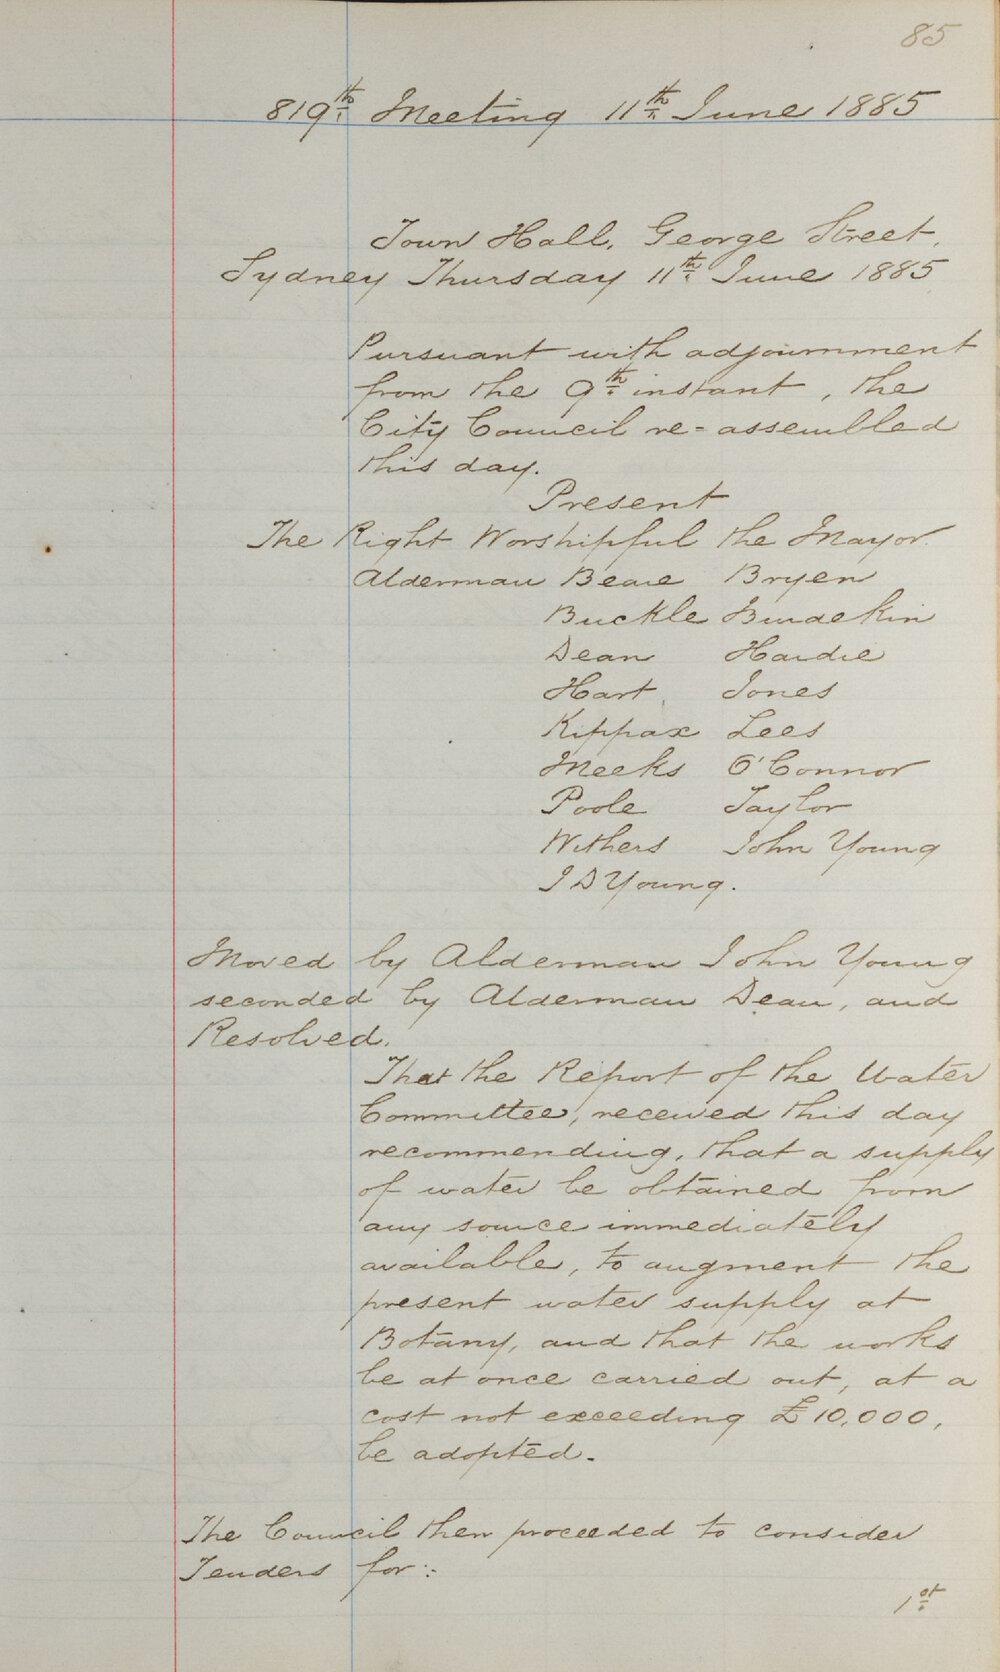 85
819th Meeting 11th June 1885
Town Hall, George Street,
Sydney Thursday 11th June 1885
Pursuant with adjournment
from the 9th instant, the
City Council re-assembled
this day.
Present
The Right Worshipful the Mayor.
Alderman Beare Bryen
Buckle Burdekin
Dean Hardie
Hart Jones
Kippax Lees
Meeks O'Connor
Poole Taylor
Withers John Young
J D Young.
Moved by Alderman John Young
seconded by Alderman Dean, and
Resolved.
That the Report of the Water
Committee, received this day
recommending, that a supply
of water be obtained from
any source immediately
available, to augment the
present water supply at
Botany, and that the works
be at once carried out, at a
cost not exceeding £10,000,
be adopted.
The Council then proceeded to consider
Tenders for:
1st